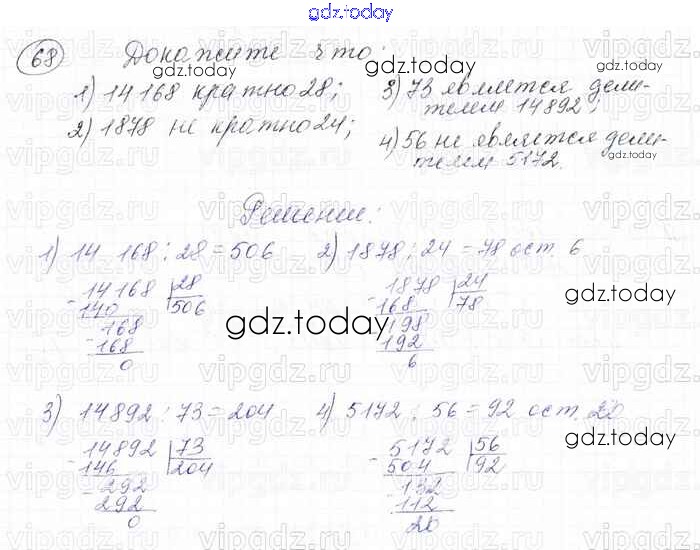 gdz.today
68 Докажите что:
1) 14 168 кратно 28;
2) 1878 не кратно 24;
3) 73 является дели-
телем 14892;
4) 56 не является дели-
телем 5172.
Решение:
1) 14 168 : 28 = 506
14168 28
140 506
168
168
0
2) 1878 : 24 = 78 ост. 6
1878 24
168 78
198
192
6
3) 14892 : 73 = 204
14892 73
146 204
292
292
0
4) 5172 : 56 = 92 ост. 20
5172 56
504 92
132
112
20
gdz.today
gdz.today
gdz.today
gdz.today
gdz.today
gdz.today
gdz.today
gdz.today
vipgdz.ru